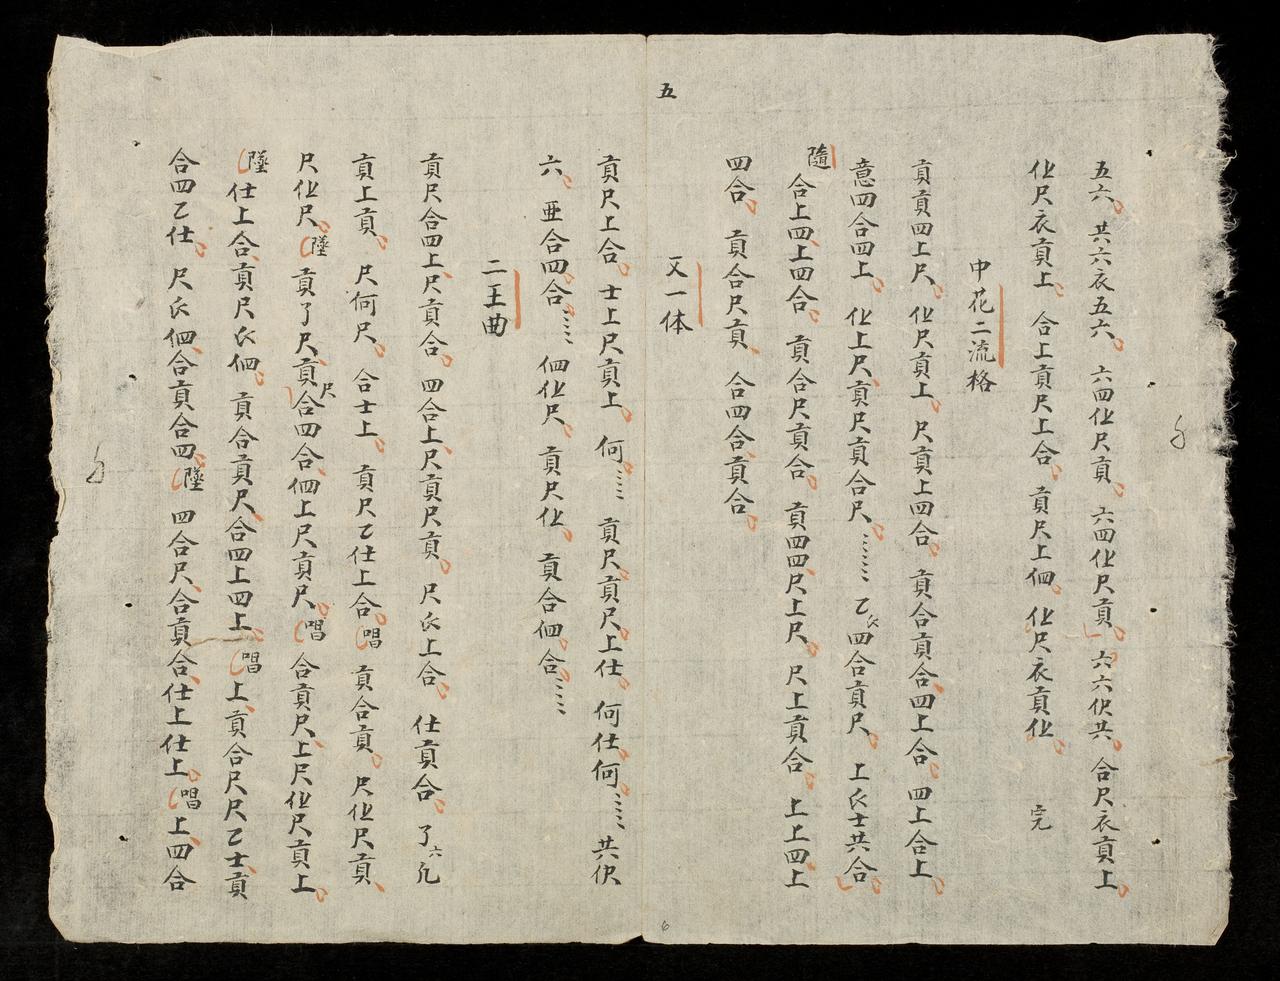 五
五六 共六衣五六 六四仩尺貢 六四仩尺貢 六六伬共 合尺衣貢上
仩尺衣貢上 合上貢尺上合 貢尺上㐰 仩尺衣貢仩 完
中花二流格
貢貢四上尺 仩尺貢上 尺貢上四合 貢合貢合四上合 四上合上
意四合四上 仩上尺貢尺貢合尺 乙 四合貢尺 上氏士共合
隨 合上四上四合 貢合尺貢合 貢四四尺上尺 尺上貢合 上上四上
四合 貢合尺貢 合四合貢合
又一体
貢尺上合 士上尺貢上 何 貢尺貢尺上仕 何仕何 共伬
六 亜合四合 仩尺 貢尺仩 貢合 合
二王曲
貢尺合四上尺貢合 四合上尺貢尺貢 尺氏上合 仕貢合 了六
貢上貢 尺何尺 合士上 貢尺乙仕上合 唱 貢合貢 尺仩尺貢
尺仩尺 墜 貢了尺貢尺合四合 上尺貢尺 唱 合貢尺上尺仩尺貢上
墜 仕上合貢尺氏 貢合貢尺合四上四上 唱 上貢合尺尺乙士貢
合四乙仕 尺氏 合貢合四 墜 四合尺合貢合仕上仕上 唱 上四合
6